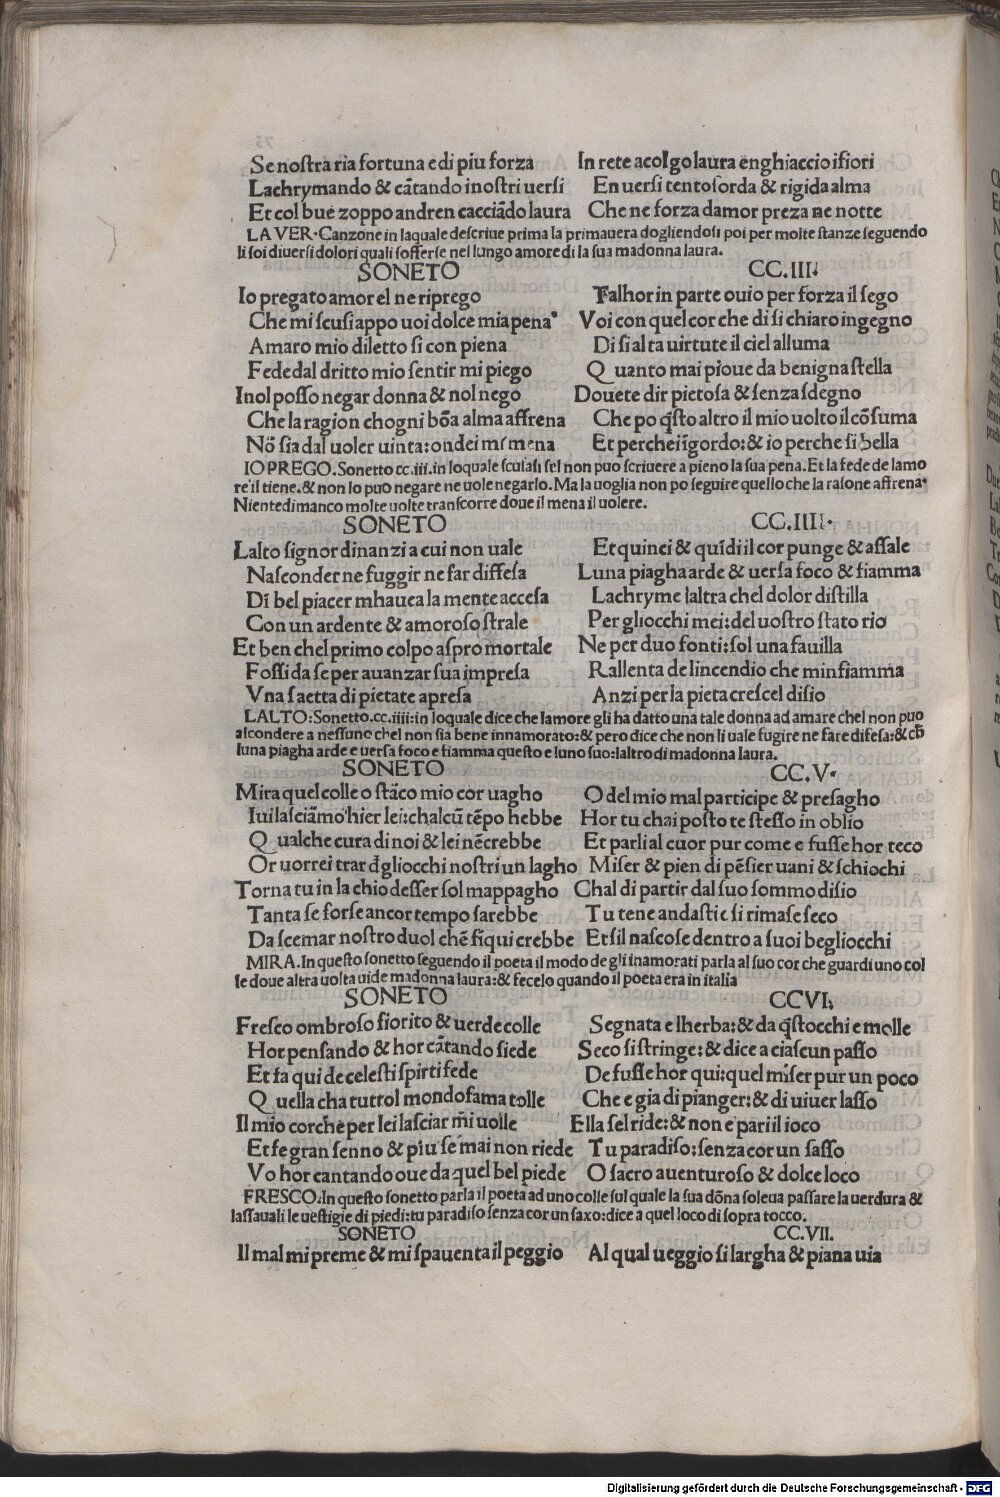 Se nostra ria fortuna e di piu forza In rete acolgo laura enghiaccio i fiori
Lachrymando & cātando i nostri uersi En uersi tento sorda & rigida alma
Et col bue zoppo andren cacciādo laura Che ne forza damor preza ne notte
LA VER. Canzone in laquale descriue prima la primauera dogliendosi poi per molte stanze seguendo
li soi diuersi dolori quali sofferse nel lungo amore di la sua madonna laura.
SONETO CC.III.
Io pregato amor el ne riprego Talhor in parte ouio per forza il sego
Che mi scusi appo uoi dolce mia pena Voi con quel cor che di si chiaro ingegno
Amaro mio diletto si con piena Di si alta uirtute il ciel alluma
Fede dal dritto mio sentir mi piego Quanto mai pioue da benigna stella
Inol posso negar donna & nol nego Douete dir pietosa & senza sdegno
Che la ragion chogni bōa alma affrena Che po q̄sto altro il mio uolto il cōsuma
Nō sia dal uoler uinta: ondei mi mena Et perche īgordo: & io perche si bella
IO PREGO. Sonetto cc.iii. in loquale scusasi sel non puo scriuere a pieno la sua pena. Et la fede de lamo
re il tiene. & non lo puo negare ne uole negarlo. Ma la uoglia non po seguire quello che la rasone affrena.
Nientedimanco molte uolte transcorre doue il mena il uolere.
SONETO CC.IIII.
Lalto signor dinanzi a cui non uale Et quinci & quīdi il cor punge & assale
Nasconder ne fuggir ne far diffesa Luna piagha arde & uersa foco & fiamma
Di bel piacer mhauea la mente accesa Lachryme laltra chel dolor distilla
Con un ardente & amoroso strale Per gliocchi mei: del uostro stato rio
Et ben chel primo colpo aspro mortale Ne per duo fonti: sol una fauilla
Fossi da se per auanzar sua impresa Rallenta de lincendio che minfiamma
Vna saetta di pietate apresa Anzi per la pieta crescel disio
LALTO: Sonetto.cc.iiii: in loquale dice che lamore gli ha datto una tale donna ad amare chel non puo
alcondere a nessuno chel non sia bene innamorato: & pero dice che non li uale fugire ne fare difesa: & ch̄
luna piagha arde e uersa foco e fiamma questo e luno suo: laltro di madonna laura.
SONETO CC.V.
Mira quel colle o stāco mio cor uagho O del mio mal participe & presagho
Iui lasciāmo hier lei: chalcū tēpo hebbe Hor tu chai posto te stesso in oblio
Qualche cura di noi & lei nēcrebbe Et parli al cuor pur come e fusse hor teco
Or uorrei trar d̄gliocchi nostri un lagho Miser & pien di pēsier uani & schiochi
Torna tu in la chio desser sol mappagho Chal di partir dal suo sommo disio
Tanta se forse ancor tempo sarebbe Tu tene andasti e si rimase seco
Da scemar nostro duol chē fi qui crebbe Et sil nascose dentro a suoi begliocchi
MIRA. In questo sonetto seguendo il poeta il modo de gli inamorati parla al suo cor che guardi uno col
le doue altra uolta uide madonna laura: & fecelo quando il poeta era in italia
SONETO CCVI.
Fresco ombroso fiorito & uerde colle Segnata e lherba: & da q̄stocchi e molle
Hor pensando & hor cātando siede Seco si stringe: & dice a ciascun passo
Et fa qui de celesti spirti fede De fusse hor qui: quel miser pur un poco
Quella cha tuttol mondo fama tolle Che e gia di pianger: & di uiuer lasso
Il mio cor che per lei lasciar m̄i uolle Ella sel ride: & non e pari il ioco
Et fe gran senno & piu se mai non riede Tu paradiso: senza cor un sasso
Vo hor cantando oue da quel bel piede O sacro auenturoso & dolce loco
FRESCO. In questo sonetto parla il poeta ad uno colle sul quale la sua dōna soleua passare la uerdura &
lassauali le uestigie di piedi: tu paradiso senza cor un saxo: dice a quel loco di sopra tocco.
SONETO CC.VII.
Il mal mi preme & mi spauenta il peggio Al qual ueggio si largha & piana uia
Digitalisierung gefördert durch die Deutsche Forschungsgemeinschaft - DFG